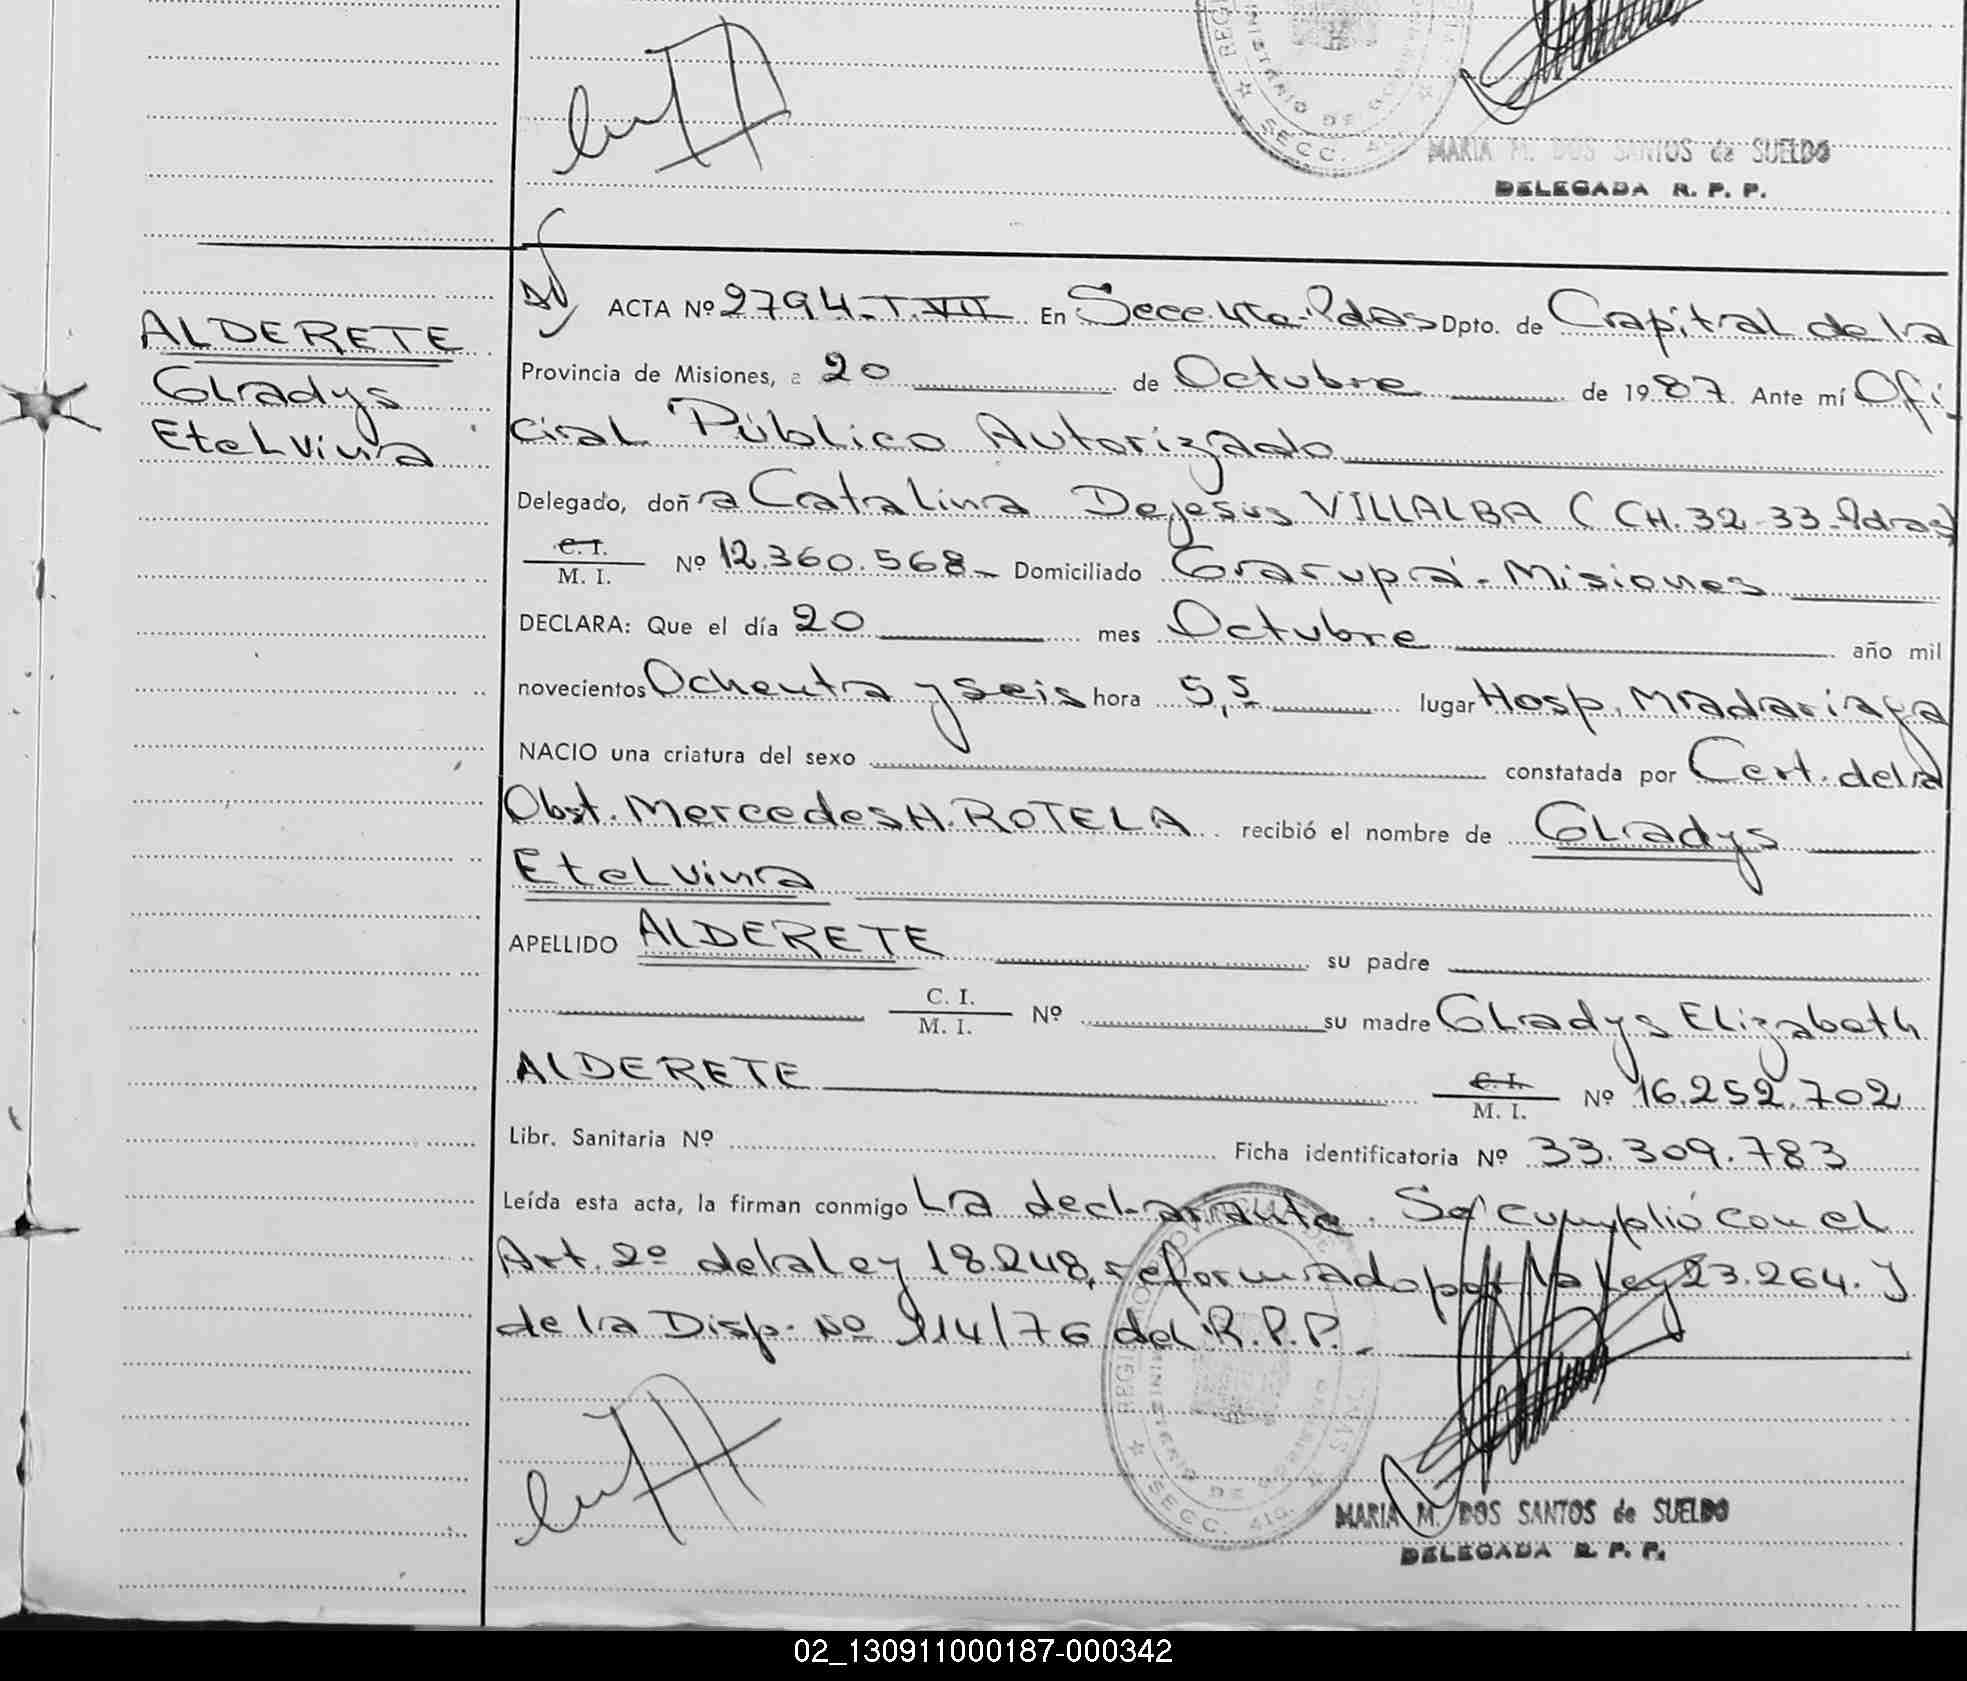 MARIA M. DOS SANTOS de SUELDO
DELEGADA R. P. P.
ALDERETE
Gladys
Etelvina
ACTA Nº 2794-T.VII En Secc. 4ta. Pdas Dpto. de Capital de la
Provincia de Misiones, a 20 de Octubre de 1987. Ante mí Ofi-
cial Público Autorizado
Delegado, doña Catalina Dejesus VILLALBA (CH.32-33.Pdas)
C. I.
M. I. Nº 12.360.568- Domiciliado Garupá - Misiones
DECLARA: Que el día 20 mes Octubre año mil
novecientos Ochenta y seis hora 5,5 lugar Hosp. Madariaga
NACIO una criatura del sexo constatada por Cert. de la
Obst. Mercedes H. ROTELA recibió el nombre de Gladys
Etelvina
APELLIDO ALDERETE su padre
C. I.
M. I. Nº su madre Gladys Elizabeth
ALDERETE C. I.
M. I. Nº 16.252.702
Libr. Sanitaria Nº Ficha identificatoria Nº 33.309.783
Leída esta acta, la firman conmigo La declarante. Se cumplió con el
Art. 2º de la Ley 18.248, reformado por la Ley 23.264. y
de la Disp. Nº 114/76 del R.P.P.-
MARIA M. DOS SANTOS de SUELDO
DELEGADA R. P. P.
02_130911000187-000342